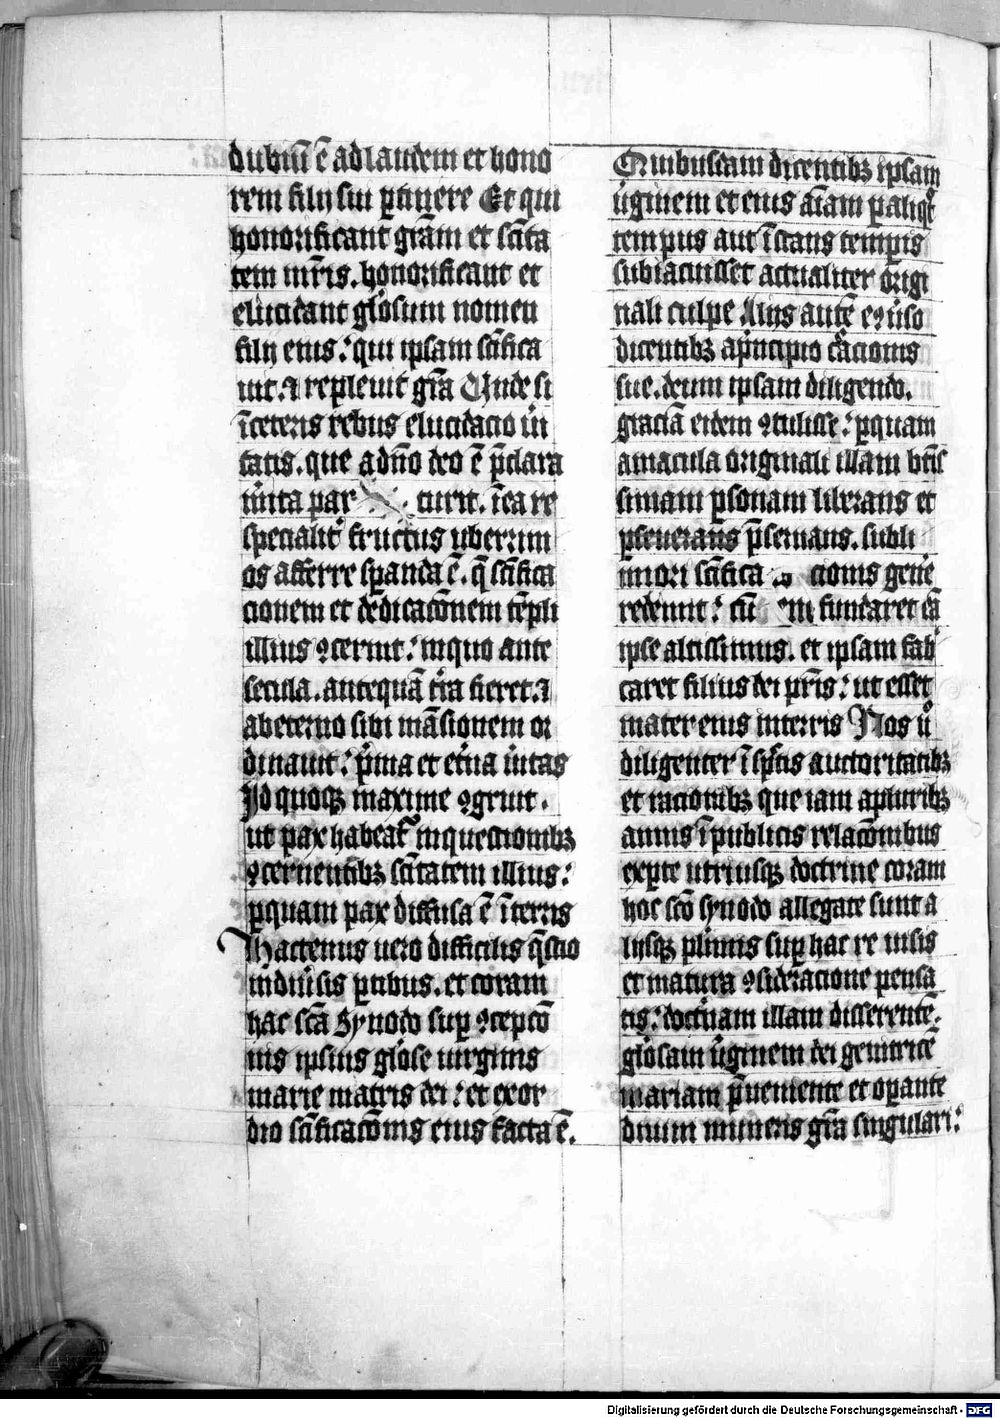 dubiũ ẽ ad laudem et hono
rem filij sui ꝑtinere Et qui
honorificant grãm et scĩta
tem mr̃is. honorificant et
elucidant glõsum nomen
filij eius: qui ipsam scĩfica
uit. ⁊ repleuit gr̃a Unde si
ĩ ceteris rebus elucidacio ũi
tatis. que a dño deo ẽ p̃clara
multa par turit. ĩ ea re
specialit̃ fructus uberrim
os afferre speranda ẽ. q̃ scĩfica
cionem et dedicacõnem tẽpli
illius ꝯcernit: in quo ante
secula. antequã tr̃a fieret. ⁊
ab eterno sibi mãsionem or
dinauit: p̃ma et et̃na ũitas
Id quoqꝫ maxime ꝯgruit.
ut pax habeat̃ in questionibꝫ
ꝯcernentibꝫ scĩtatem illius:
ꝑ quam pax diffusa ẽ ĩ terris
Hactenus uero difficilis q̃stio
in diũsis ꝑtibus. et coram
hac scã Synodo suꝑ ꝯcepcõ
nis ipsius glõse uirginis
marie matris dei: et exor
dio scĩficacõnis eius facta ẽ.
Quibusdam dicentibꝫ ipsam
ũginem et eius aĩam ꝑ aliqᵒt
tempus aut ĩstans temporis
subiacuisset actualiter origi
nali culpe Alijs autẽ eꝯũso
dicentibꝫ a p̃ncipio c̃acionis
sue. deum ipsam diligendo.
graciã eidem ꝯtulisse: ꝑ quam
a macula originali illam bt̃is
simam ꝑsonam liberans et
ꝑseuerans p̃seruans. subli
miori scĩfica cionis gene
re redemit: cũ em fundaret eã
ipse altissimus. et ipsam fab
caret filius dei pr̃is: ut esset
mater eius in terris Nos ũ
diligenter ĩspectis auctoritatibꝫ
et racionibꝫ que iam a pluribꝫ
annis ĩ publicis relacõnibus
ex ꝑte utriusqꝫ doctrine coram
hoc scõ synodo allegate sunt a
lijsqꝫ pl̃imis suꝑ hac re uisis
et matura ꝯsideracione pensa
tis: doct̃nam illam disserentẽ.
glõsam ũginem dei genitricẽ
mariam p̃ueniente et oꝑante
diuini muneris gr̃a singulari:
Digitalisierung gefördert durch die Deutsche Forschungsgemeinschaft - DFG